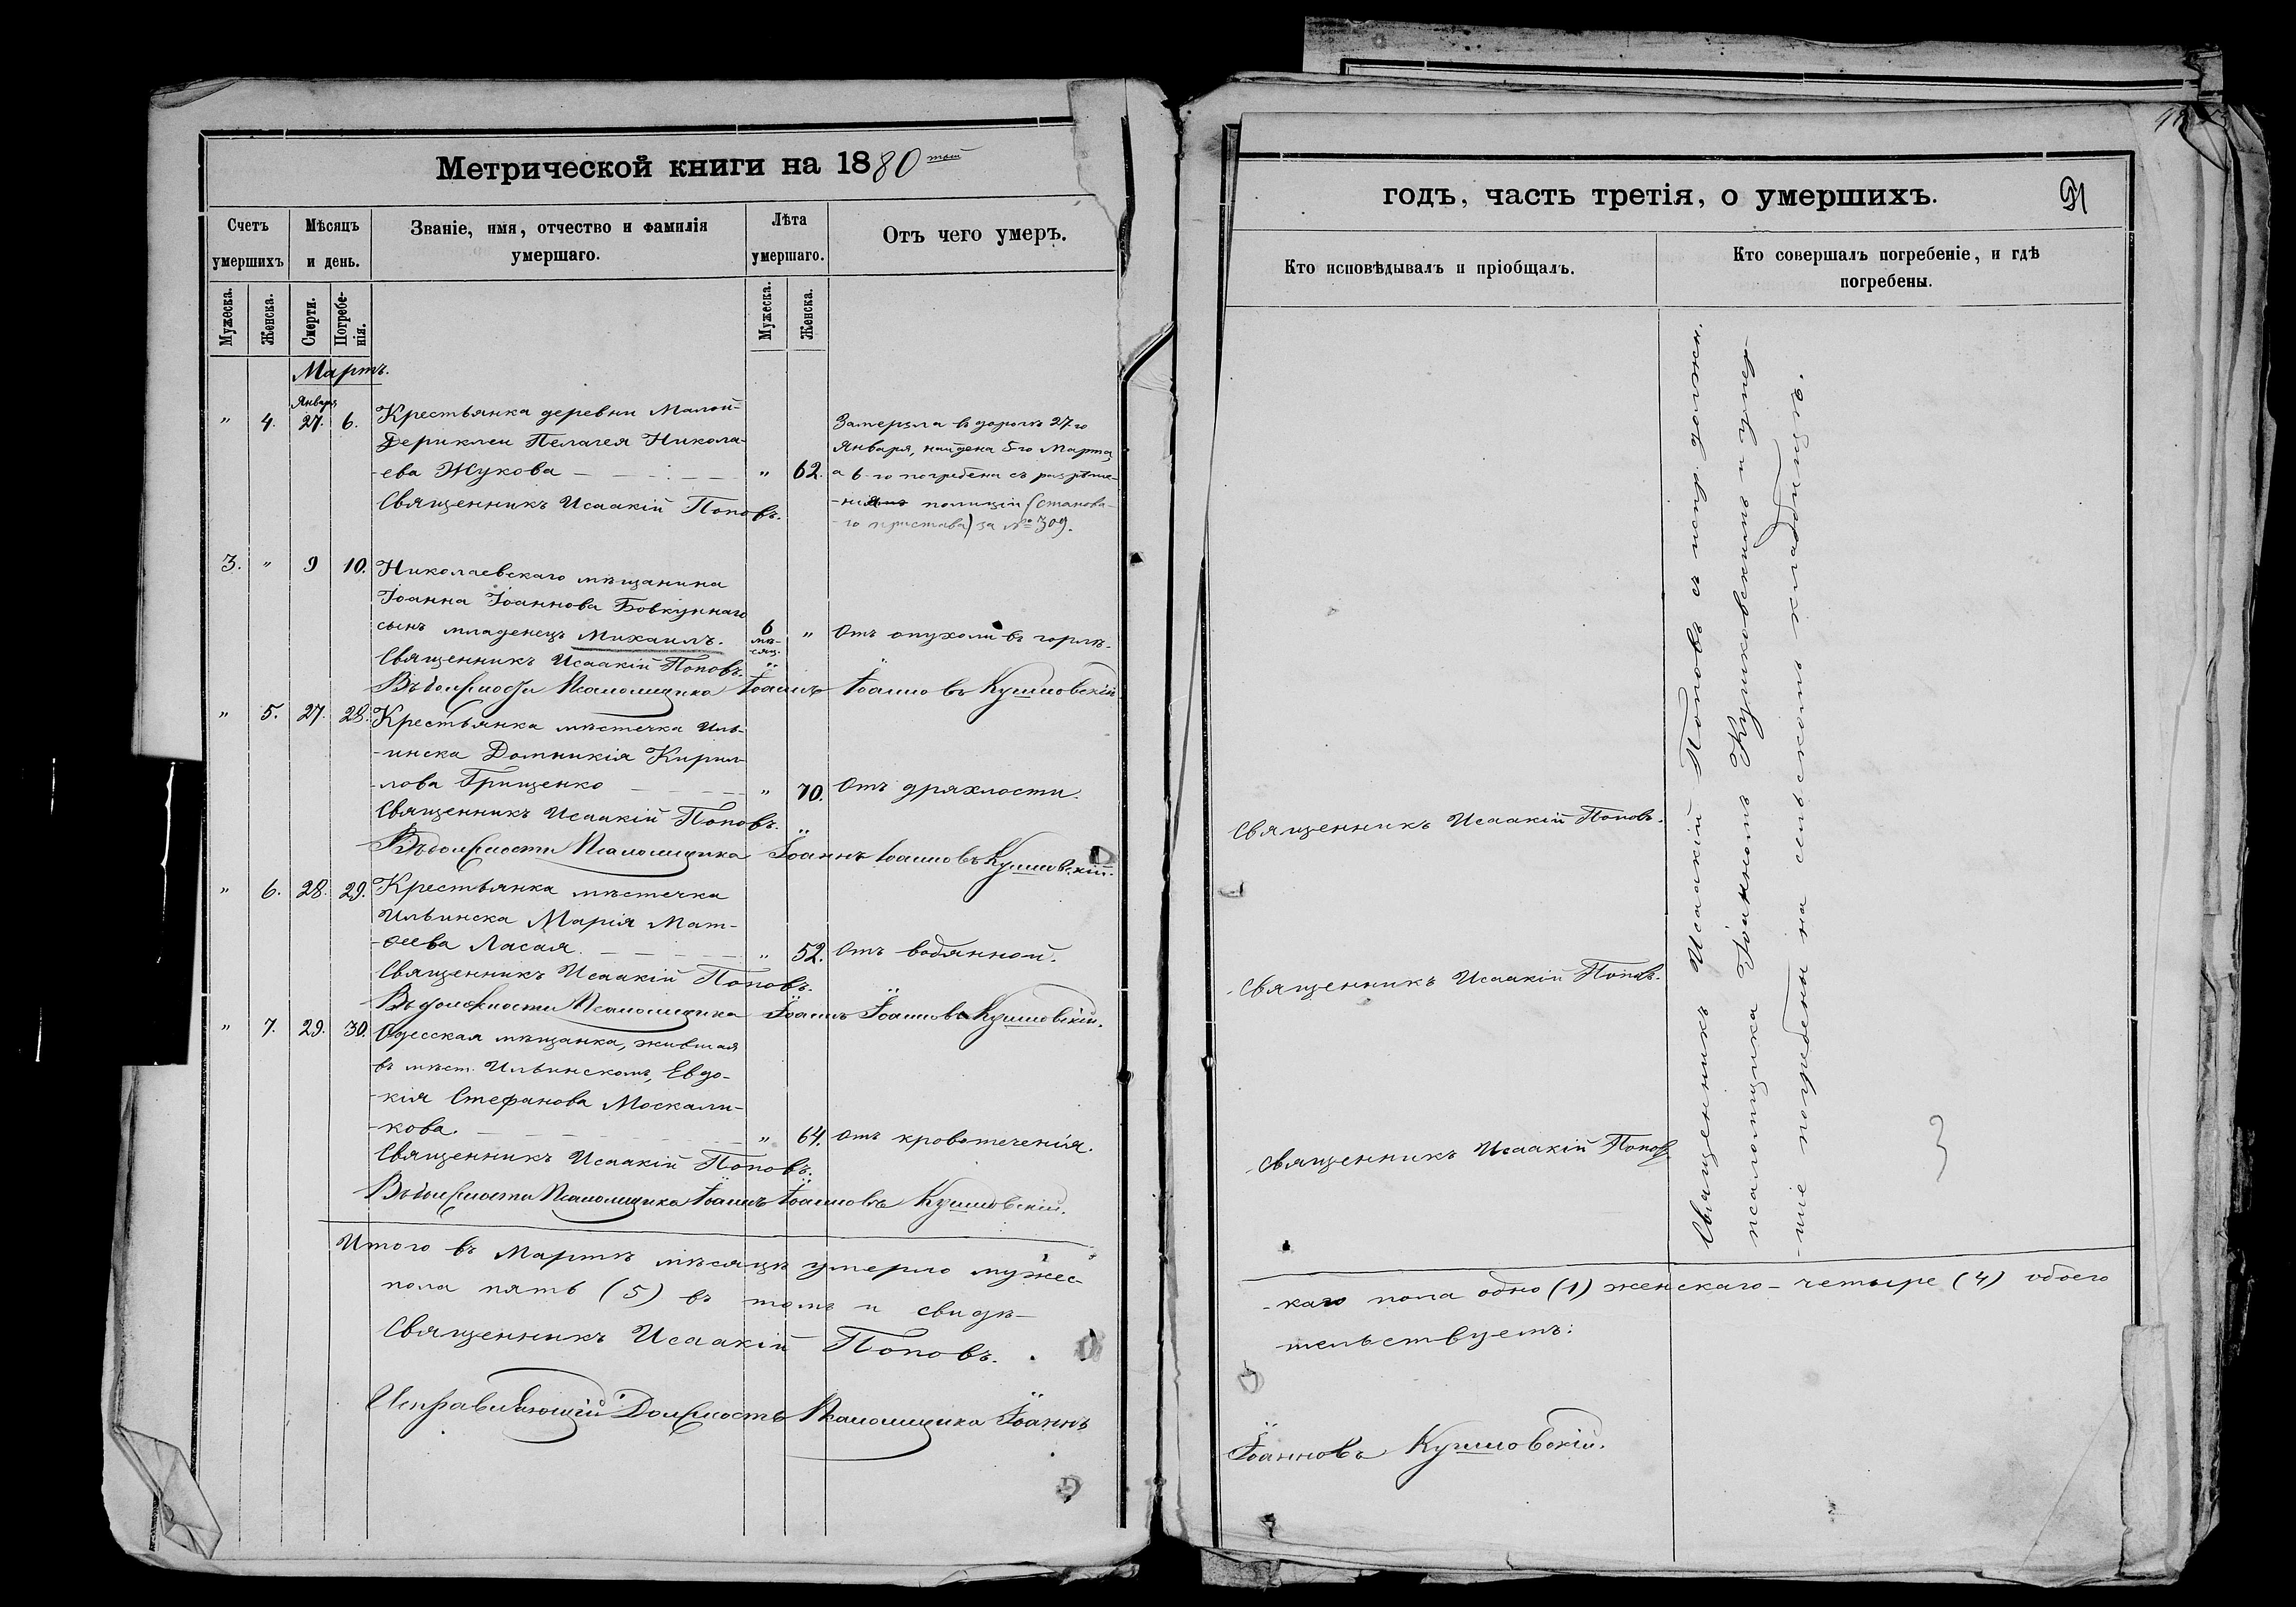 Метрической книги на 1880тый
Счетъ умершихъ
Мѣсяцъ и день.
Званіе, имя, отчество и фамилія умершаго.
Лѣта умершаго.
Отъ чего умеръ.
Мужеска.
Женска.
Смерти.
Погребе-
нія.
Мужеска.
Женска.
Мартъ.
Января
" 4. 27. 6. Крестьянка деревни Малой-
Дериклеи Пелагея Никола-
-ева Жукова " 62.
Священникъ Исаакій Поповъ.
Замерзла въ дорогѣ 27го
Января, найдена 5-го Марта,
а 6-го погребена съ разрѣше-
полиціи (станова-
-го пристава) за № 309.
3. " 9 10. Николаевскаго мѣщанина
Іоанна Іоаннова Бовкуннаго
сынъ младенецъ Михаилъ. 6 мѣ-
сяц. " Отъ опухоли въ горлѣ.
Священникъ Исаакій Поповъ.
Въ должности Псаломщика Іоаннъ Іоанновъ
" 5. 27. 28. Крестьянка мѣстечка Иль-
-инска Домникія Кирил-
-лова Грищенко " 70. Отъ дряхлости.
Священникъ Исаакій Поповъ.
Въ должности Псаломщика Іоаннъ Іоанновъ
" 6. 28. 29. Крестьянка мѣстечка
Ильинска Марія Мат-
-ѳеева Ласая. " 52. Отъ водянной.
Священникъ Исаакій Поповъ.
Въ должности Псаломщика Іоаннъ Іоанновъ
" 7. 29. 30. Одесская мѣщанка, жившая
въ мѣст. Ильинскомъ, Евдо-
-кія Стефанова Москали-
-кова. " 64. Отъ кровотеченія.
Священникъ Исаакій Поповъ.
Въ должности Псаломщика Іоаннъ Іоанновъ
Итого въ Мартѣ мѣсяцѣ умерло мужес-
пола пять (5) въ томъ и свидѣ-
Священникъ Исаакій Поповъ.
Исправляющій Должность Псаломщика Іоаннъ
годъ, часть третія, о умершихъ.
91
Кто исповѣдывалъ и пріобщалъ.
Кто совершалъ погребеніе, и гдѣ
погребены.
Священникъ Исаакій Поповъ.
Священникъ Исаакій Поповъ.
Священникъ Исаакій Поповъ
Священникъ Исаакій Поповъ съ испр. должн.
псаломщика Іоанномъ и умер-
-шіе погребены на сельскомъ кладбищѣ.
-каго пола одно (1) женскаго - четыре (4) обоего
-тельствуемъ:
Іоанновъ